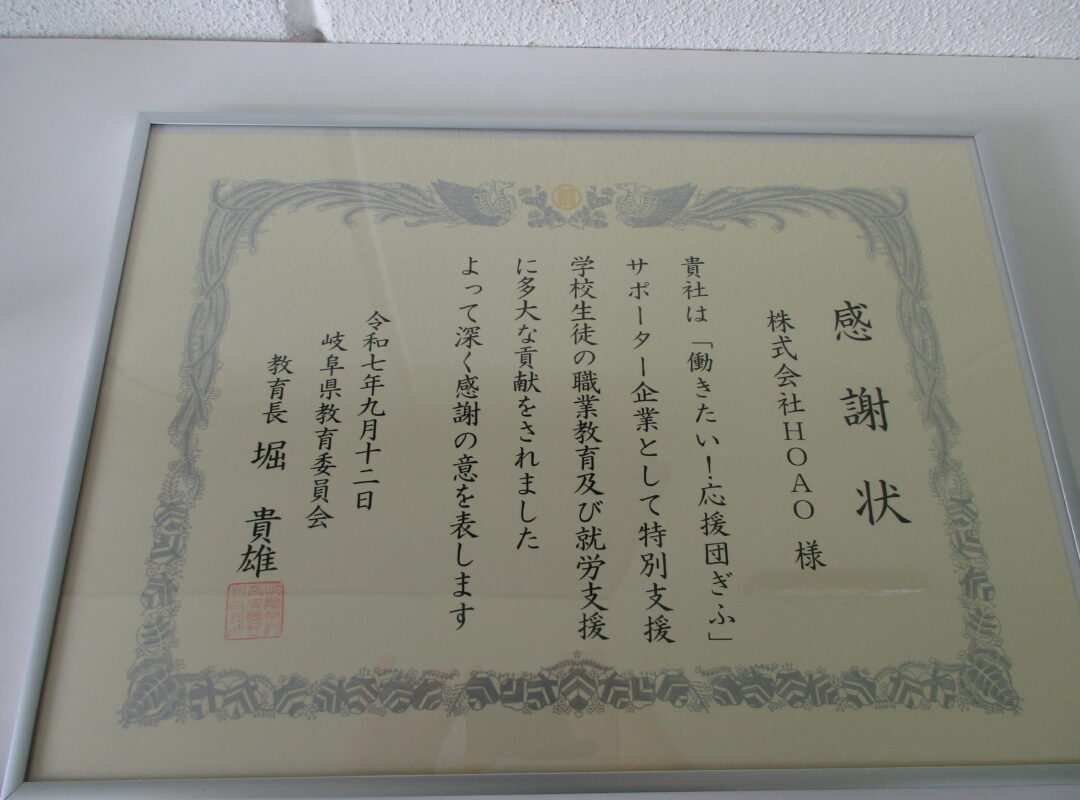 感謝状
株式会社HOAO 様
貴社は「働きたい！応援団ぎふ」
サポーター企業として特別支援
学校生徒の職業教育及び就労支援
に多大な貢献をされました
よって深く感謝の意を表します
令和七年九月十二日
岐阜県教育委員会
教育長 堀 貴雄